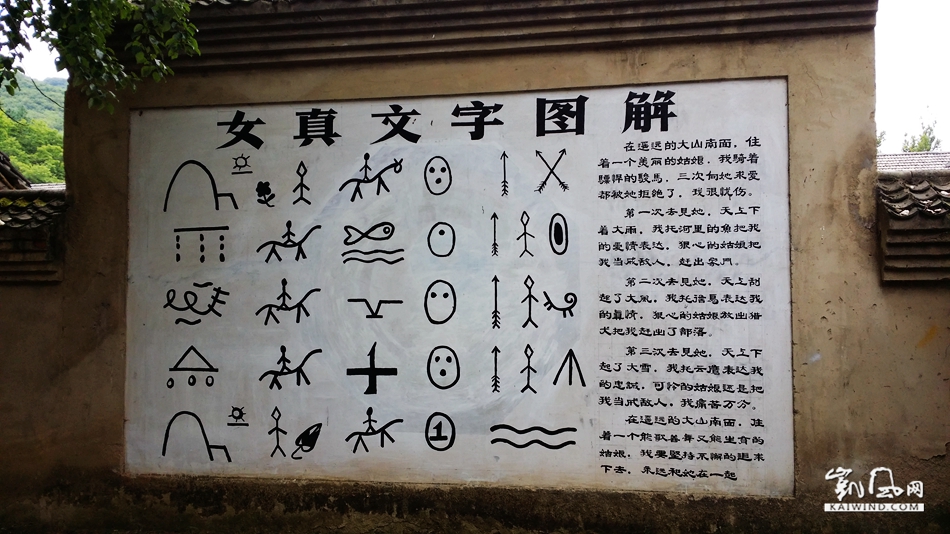 女真文字图解
在遥远的大山南面，住
着一个美丽的姑娘，我骑着
骠悍的骏馬，三次向她求爱
都被她拒绝了，我很忧伤。
第一次去見她，天上下
着大雨，我托河里的魚把我
的爱情表达，狠心的姑娘把
我当成敌人，赶出家門。
第二次去見她，天上刮
起了大風，我托信易表达我
的真情，狠心的姑娘放出猎
犬把我赶出了部落。
第三次去見她，天上下
起了大雪，我托云鹰表达我
的忠誠，可怜的姑娘还是把
我当成敌人，我痛苦万分。
在遥远的大山南面，住
着一个能歌善舞又能生育的
姑娘，我要堅持不懈的追求
下去，永远和她在一起
1
凯风网
KAIWIND.COM